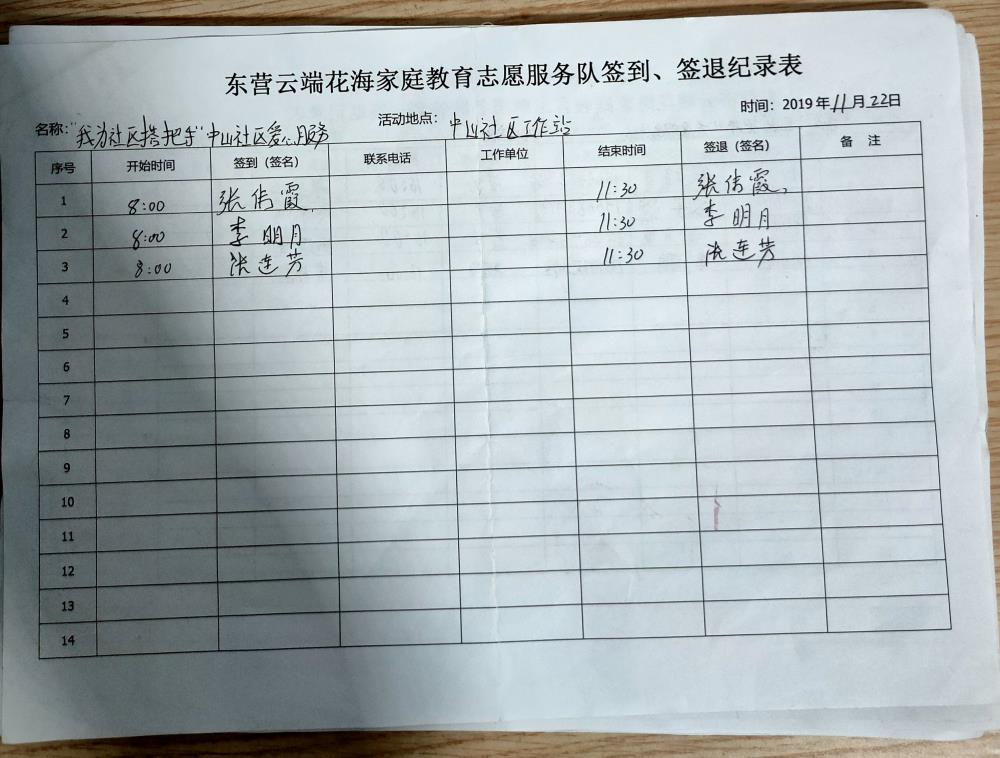 东营云端花海家庭教育志愿服务队签到、签退纪录表
名称："我为社区搭把手"中山社区爱心服务 活动地点：中山社区工作站 时间：2019年11月22日
序号 开始时间 签到（签名） 联系电话 工作单位 结束时间 签退（签名） 备 注
1 8:00 张倩霞 11:30 张倩霞
2 8:00 李明月 11:30 李明月
3 8:00 张连芳 11:30 张连芳
4
5
6
7
8
9
10
11
12
13
14